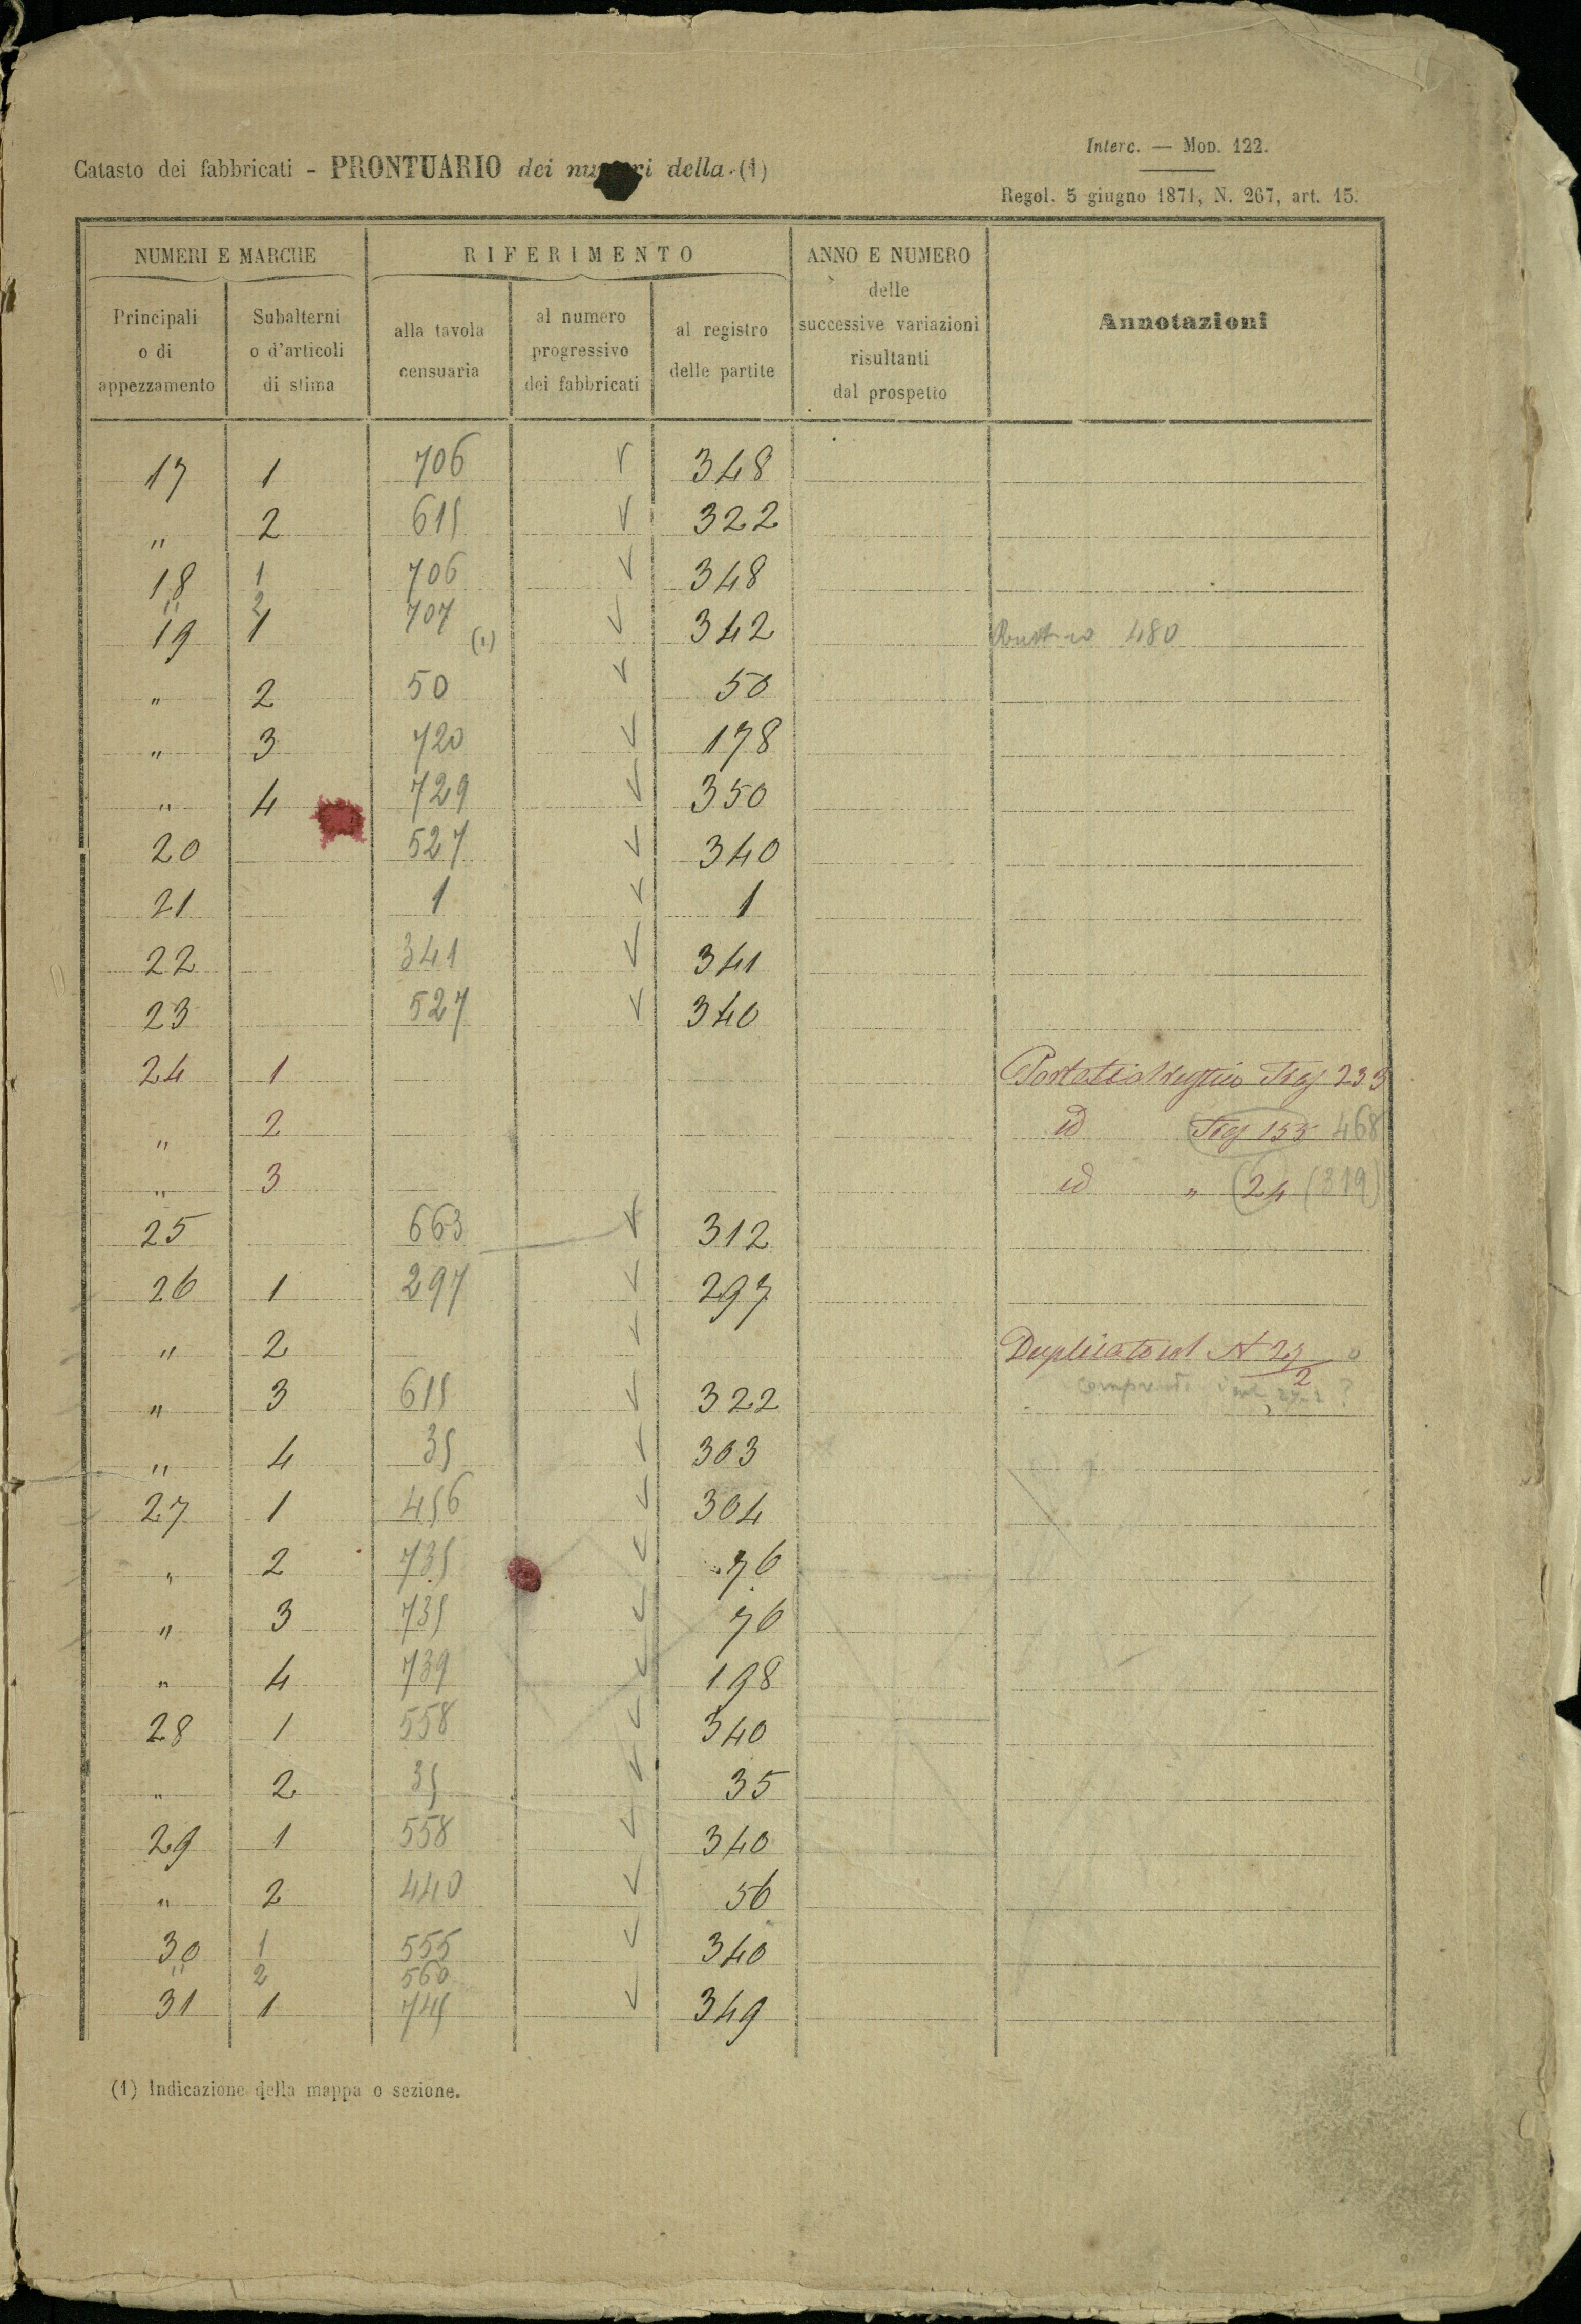 Interc. — Mod. 122.
Catasto dei fabbricati - PRONTUARIO dei numeri della (1)
Regol. 5 giugno 1871, N. 267, art. 15.
NUMERI E MARCHE RIFERIMENTO ANNO E NUMERO delle successive variazioni risultanti dal prospetto Annotazioni
Principali o di appezzamento Subalterni o d'articoli di stima alla tavola censuaria al numero progressivo dei fabbricati al registro delle partite
17 1 706 V 348
" 2 615 V 322
18 1 706 V 348
" 2
19 1 707 (1) V 342 480
" 2 50 V 50
" 3 720 V 178
" 4 729 V 350
20 527 V 340
21 1 V 1
22 341 V 341
23 527 V 340
24 1 233
" 2 id 155 468
" 3 id " 24 (319)
25 663 V 312
26 1 297 V 297
" 2 V Duplicato col N 27/2
" 3 615 V 322
" 4 35 V 303
27 1 456 V 304
" 2 735 V 76
" 3 735 V 76
" 4 739 V 198
28 1 558 V 340
" 2 35 V 35
29 1 558 V 340
" 2 440 V 56
30 1 555 V 340
" 2 560
31 1 745 V 349
(1) Indicazione della mappa o sezione.